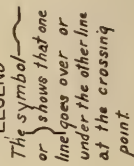 LEGEND
The symbol
or shows that one
line goes over or
under the other line
at the crossing
point.